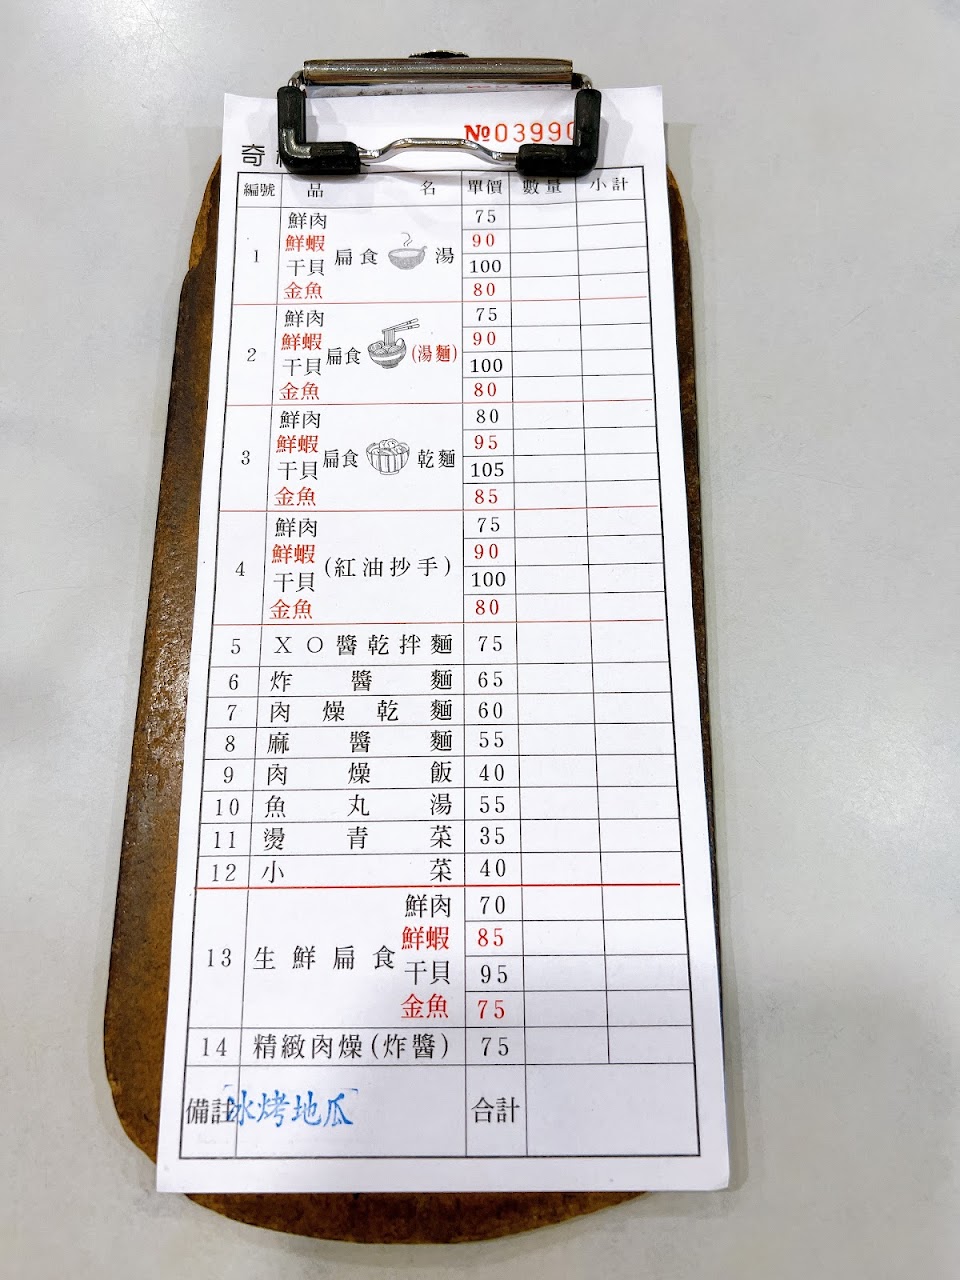 №03990
奇
編號 品名 單價 數量 小計
1 扁食湯
鮮肉 75
鮮蝦 90
干貝 100
金魚 80
2 扁食(湯麵)
鮮肉 75
鮮蝦 90
干貝 100
金魚 80
3 扁食乾麵
鮮肉 80
鮮蝦 95
干貝 105
金魚 85
4 (紅油抄手)
鮮肉 75
鮮蝦 90
干貝 100
金魚 80
5 XO醬乾拌麵 75
6 炸醬麵 65
7 肉燥乾麵 60
8 麻醬麵 55
9 肉燥飯 40
10 魚丸湯 55
11 燙青菜 35
12 小菜 40
13 生鮮扁食
鮮肉 70
鮮蝦 85
干貝 95
金魚 75
14 精緻肉燥(炸醬) 75
備註「冰烤地瓜」 合計